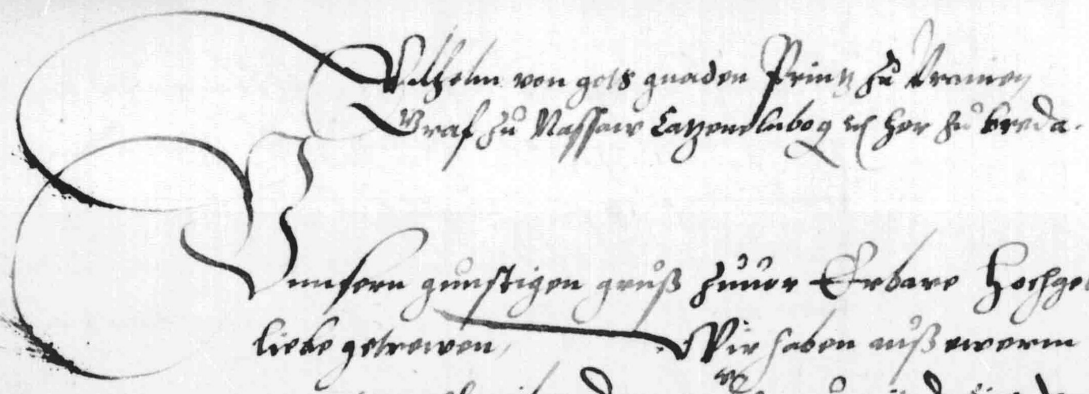 Wilhelm von gots gnaden Printz zu Uranien
Graf zu Nassaw Catzenelnbog etc her zu Breda.
Unnsern gunstigen gruß zuuor Erbare Hochgel
liebe getrewen, Wir haben auß ewerm